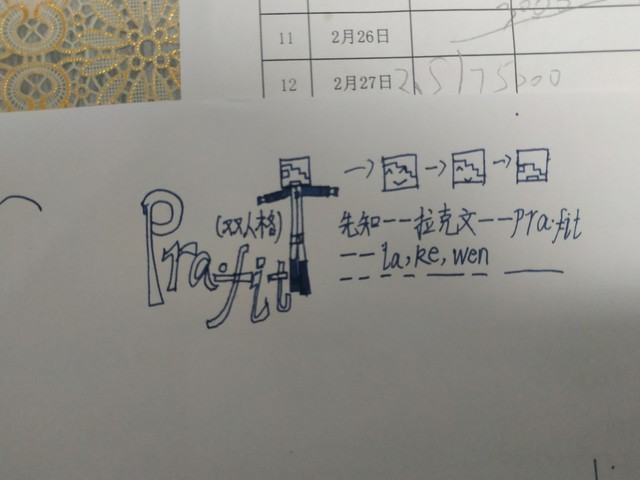 11 2月26日
12 2月27日 2.5175000
(双人格)
Pra.fit
先知--拉克文--pra.fit
--la,ke,wen